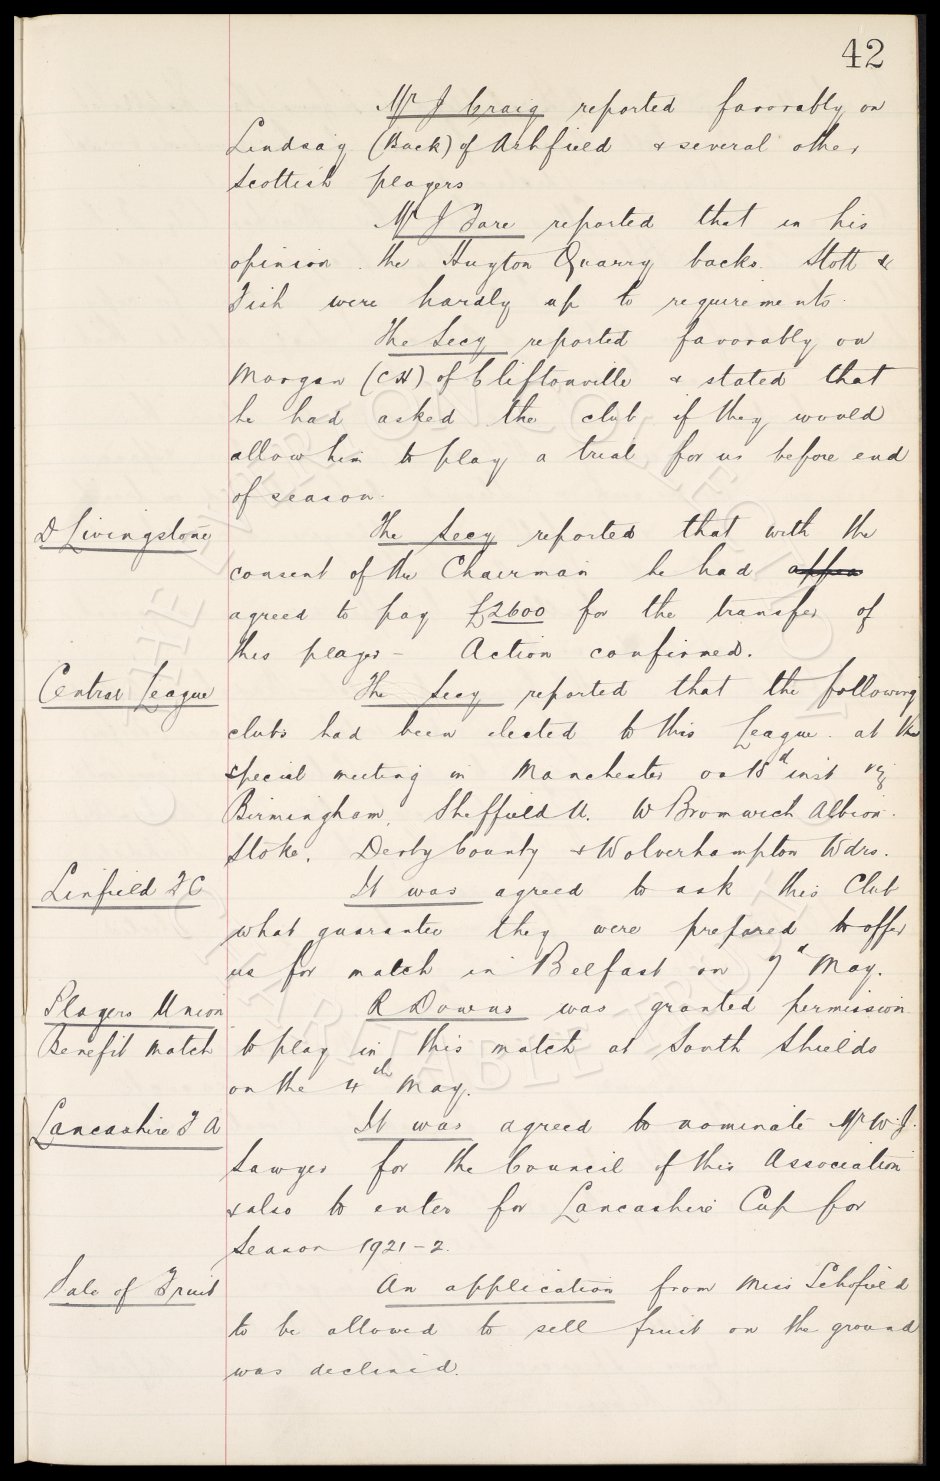 42
Mr J Craig reported favorably on
Lindsay (Back) of Ashfield & several other
Scottish players
Mr J Fare reported that in his
opinion the Huyton Quarry backs Stott &
Fish were hardly up to requirements.
The Secy reported favorably on
Morgan (CH) of Cliftonville & stated that
he had asked the club if they would
allow him to play a trial for us before end
of season.
D Livingstone The Secy reported that with the
consent of the Chairman he had appea
agreed to pay £2600 for the transfer of
this player - Action confirmed.
Central League The Secy reported that the following
clubs had been elected to this League at the
special meeting in Manchester on 18th inst viz
Birmingham, Sheffield U. W Bromwich Albion.
Stoke, Derby County & Wolverhampton Wdrs.
Linfield FC It was agreed to ask this Club
what guarantee they were prepared to offer
us for match in Belfast on 7th May.
Players Union R Downs was granted permission
Benefit match to play in this match at South Shields
on the 4th May.
Lancashire F A It was agreed to nominate Mr W. J.
Sawyer for the Council of this Association
& also to enter for Lancashire Cup for
Season 1921-2.
Sale of Fruit An application from Miss Schofield
to be allowed to sell fruit on the ground
was declined.
THE EVERTON COLLECTION
CHARITABLE TRUST